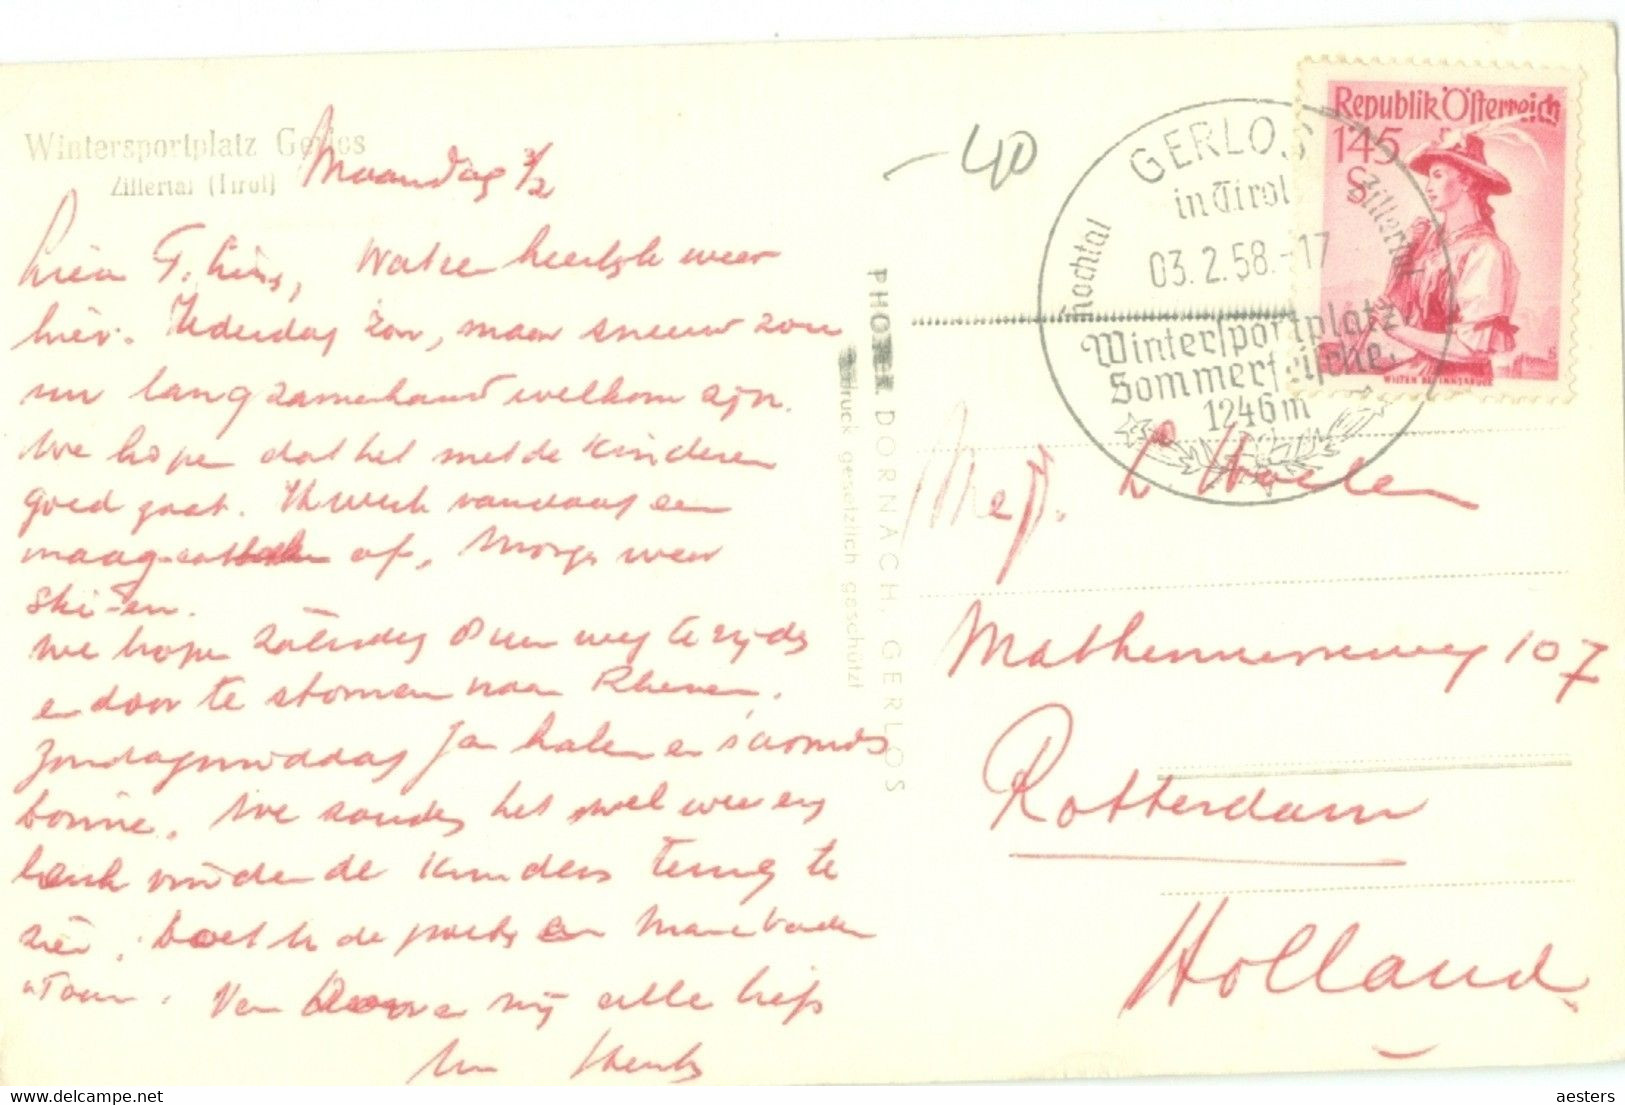 Wintersportplatz Gerlos
Zillertal (Tirol)
Maandag 3/2
Lieve T. Wat een heerlijk weer
hier. Iedere dag zon, maar sneeuw zou
nu langzamerhand welkom zijn.
We hopen dat het met de kinderen
goed gaat. Ik werk vandaag een
maag af, Morgen weer
ski-en.
We hopen zaterdag 8 uur weg te rijden
en door te stomen naar Rhenen.
Zondagmiddag Jan halen en s'avonds
We zouden het wel weer erg
leuk vinden de kinders terug te
zien. de
Van alle liefs
PHOTO DORNACH, GERLOS
druck gesetzlich geschützt
-40
GERLOS
in Tirol
Hochtal
Zillertal
03.2.58.-17
Wintersportplatz,
Sommerfrische.
1246m
Republik Österreich
1'45
S
WILTEN BEI INNSBRUCK
Mej.
Mathenesserweg 107
Rotterdam
Holland
aesters